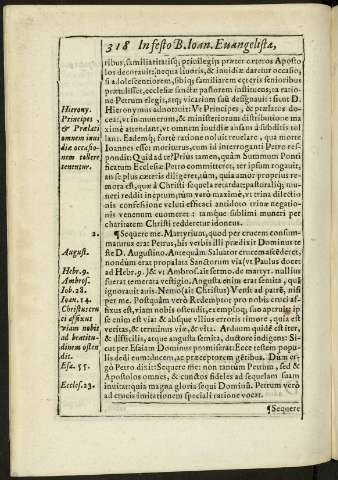 318 In festo B. Ioan. Euangelistæ,
tribus, familiaritatisq; privilegijs præter cæteros Aposto
los decoravit; nequa liuoris, & inuidiæ daretur occasio,
si adolescentiorem, sibiq; familiarem cæteris senioribus
prætulisset, ecclesiæ sanctæ pastorem institucns; ea ratio
ne Petrum elegit, atq; vicarium suū designauit: sicut D.
Hieronymus adnotauit: Vt Principes, & præfatos do
ceat, vt in munerum, & ministeriorum distributione ma
ximè attendāt, vt omnem inuidiæ ansam à subditis tol
lant. Eademq; fortè ratione noluit reuelare, qua morte
Ioannes esset moriturus, cum id interroganti Petro re
spondit: Quid ad te? Prius tamen, quàm Summum Ponti
ficatum Ecclesiæ Petro committeret, ter ipsum rogauit,
an se plus cæteris diligeret, tùm, quia amor proprius re
mota est, quæ à Christi sequela retardat: pastoraliq; mu
neri reddit ineptum, tùm verò maximè, vt trina dilectio
nis confessione veluti efficaci antidoto trinæ negatio
nis venenum euomeret: tamque sublimi muneri per
charitatem Christi redderetur idoneus.
¶Sequere me. Martyrium, quod per crucem consum-
maturus erat Petrus, his verbis illi prædixit Dominus te
ste D. Augustino. Antequàm Saluator crucem ascēderet,
nondùm erat propalata Sanctorum via (vt Paulus docet
ad Hebr. 9.) & vt Ambros. ait sermo. de martyr. nullius
fuerat temerata vestigio, Angusta enim erat semita, quā
ignorauit auis. Nemo (ait Christus) Venit ad patrē, nisi
per me. Postquàm verò Redemptor pro nobis cruci af-
fixus est, viam nobis ostendit, exemploq; suo aperuit ip
se enim est via: & absque vllius erroris timore, quia est
veritas, & terminus viæ, & vita. Arduum quidē est iter,
& difficilis, atque angusta semita, ductore indigens: Si-
cut per Esaiam Dominus promiserat: Ecce testem popu
lis dedi eum ducem, ac præceptorem gētibus. Dùm er-
gò Petro dixit: Sequere me: non tantùm Petrum, sed &
Apostolos omnes, & cunctos fideles ad sequelam suam
inuitat: quia magna gloria sequi Dominū. Petrum verò
ad crucis imitationem speciali ratione vocat.
¶Sequere
Hierony.
Principes,
& Prælati
omnem inui
diæ occasio-
nem tollere
tenentur.
2.
August.
Hebr. 9.
Ambros.
Iob. 28.
Ioan. 14.
Christus cru
ci affixus
viam nobis
ad beatitu-
dinem osten
dit.
Esa. 55.
Eccles. 23.